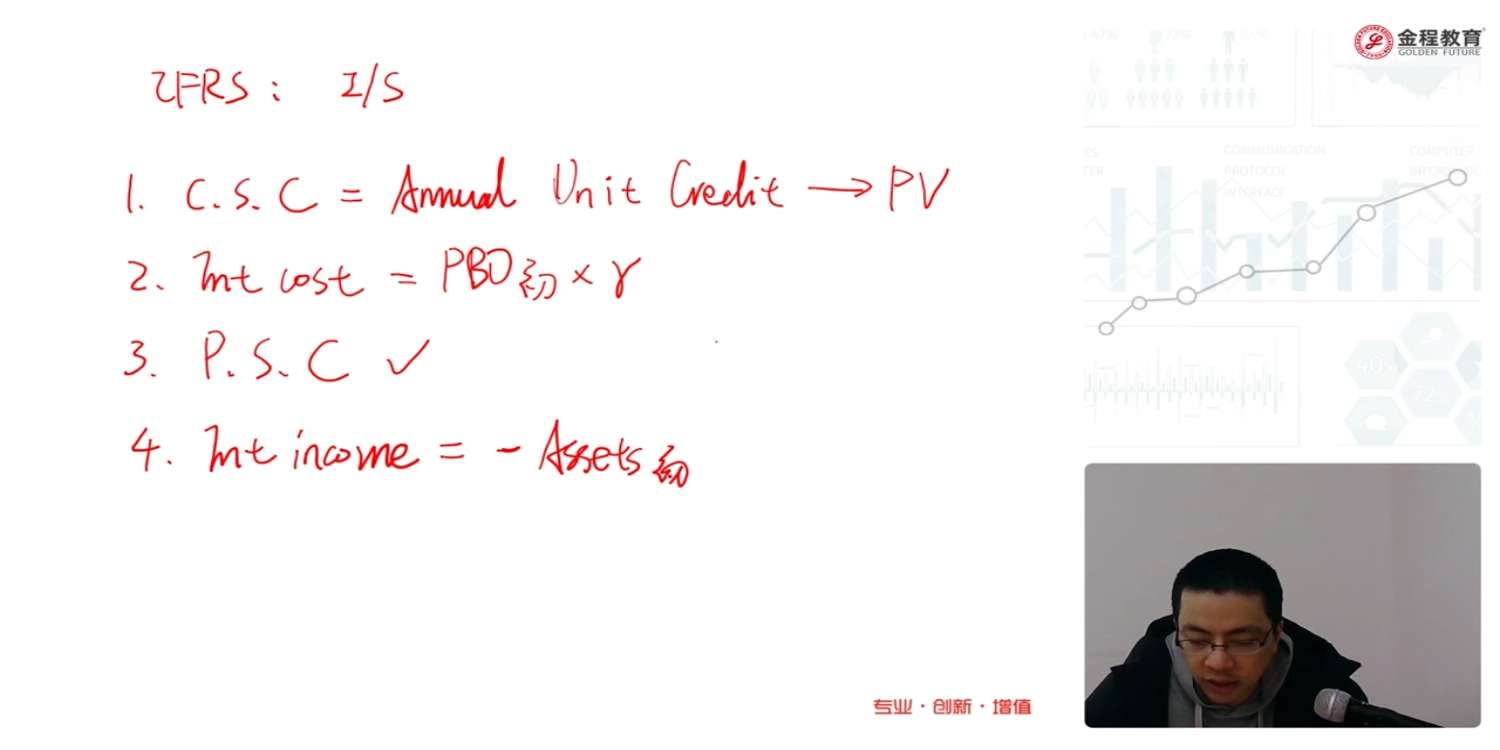 IFRS : I/S
1. C.S.C = Annual Unit Credit → PV
2. Int cost = PBO初 × r
3. P.S.C ✓
4. Int income = - Assets初
金程教育
GOLDEN FUTURE
COMMUNICATION
PROTOCOL
INTERFACE
COMPUTER
40%
72%
专业·创新·增值